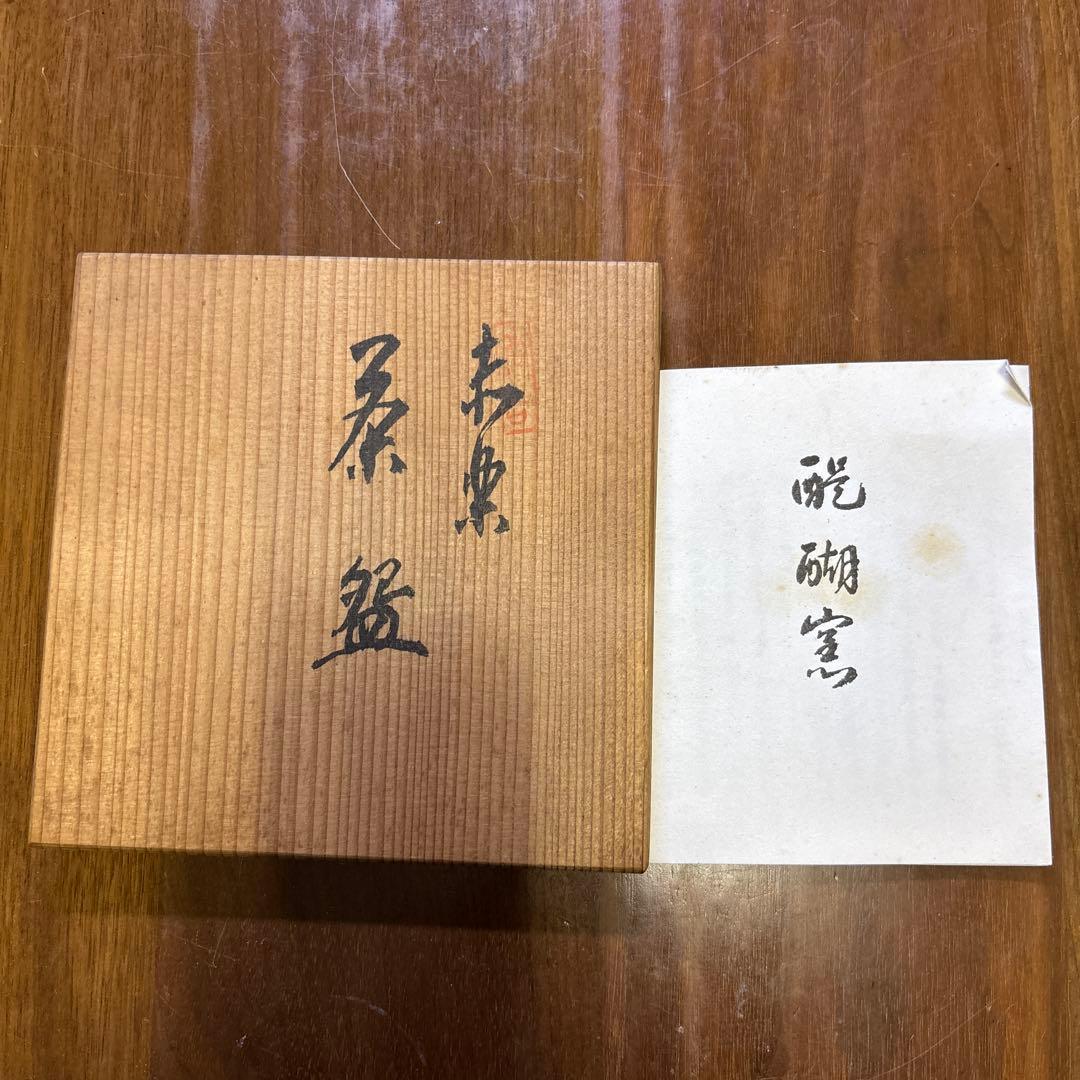 赤楽
茶盌
醍醐窯